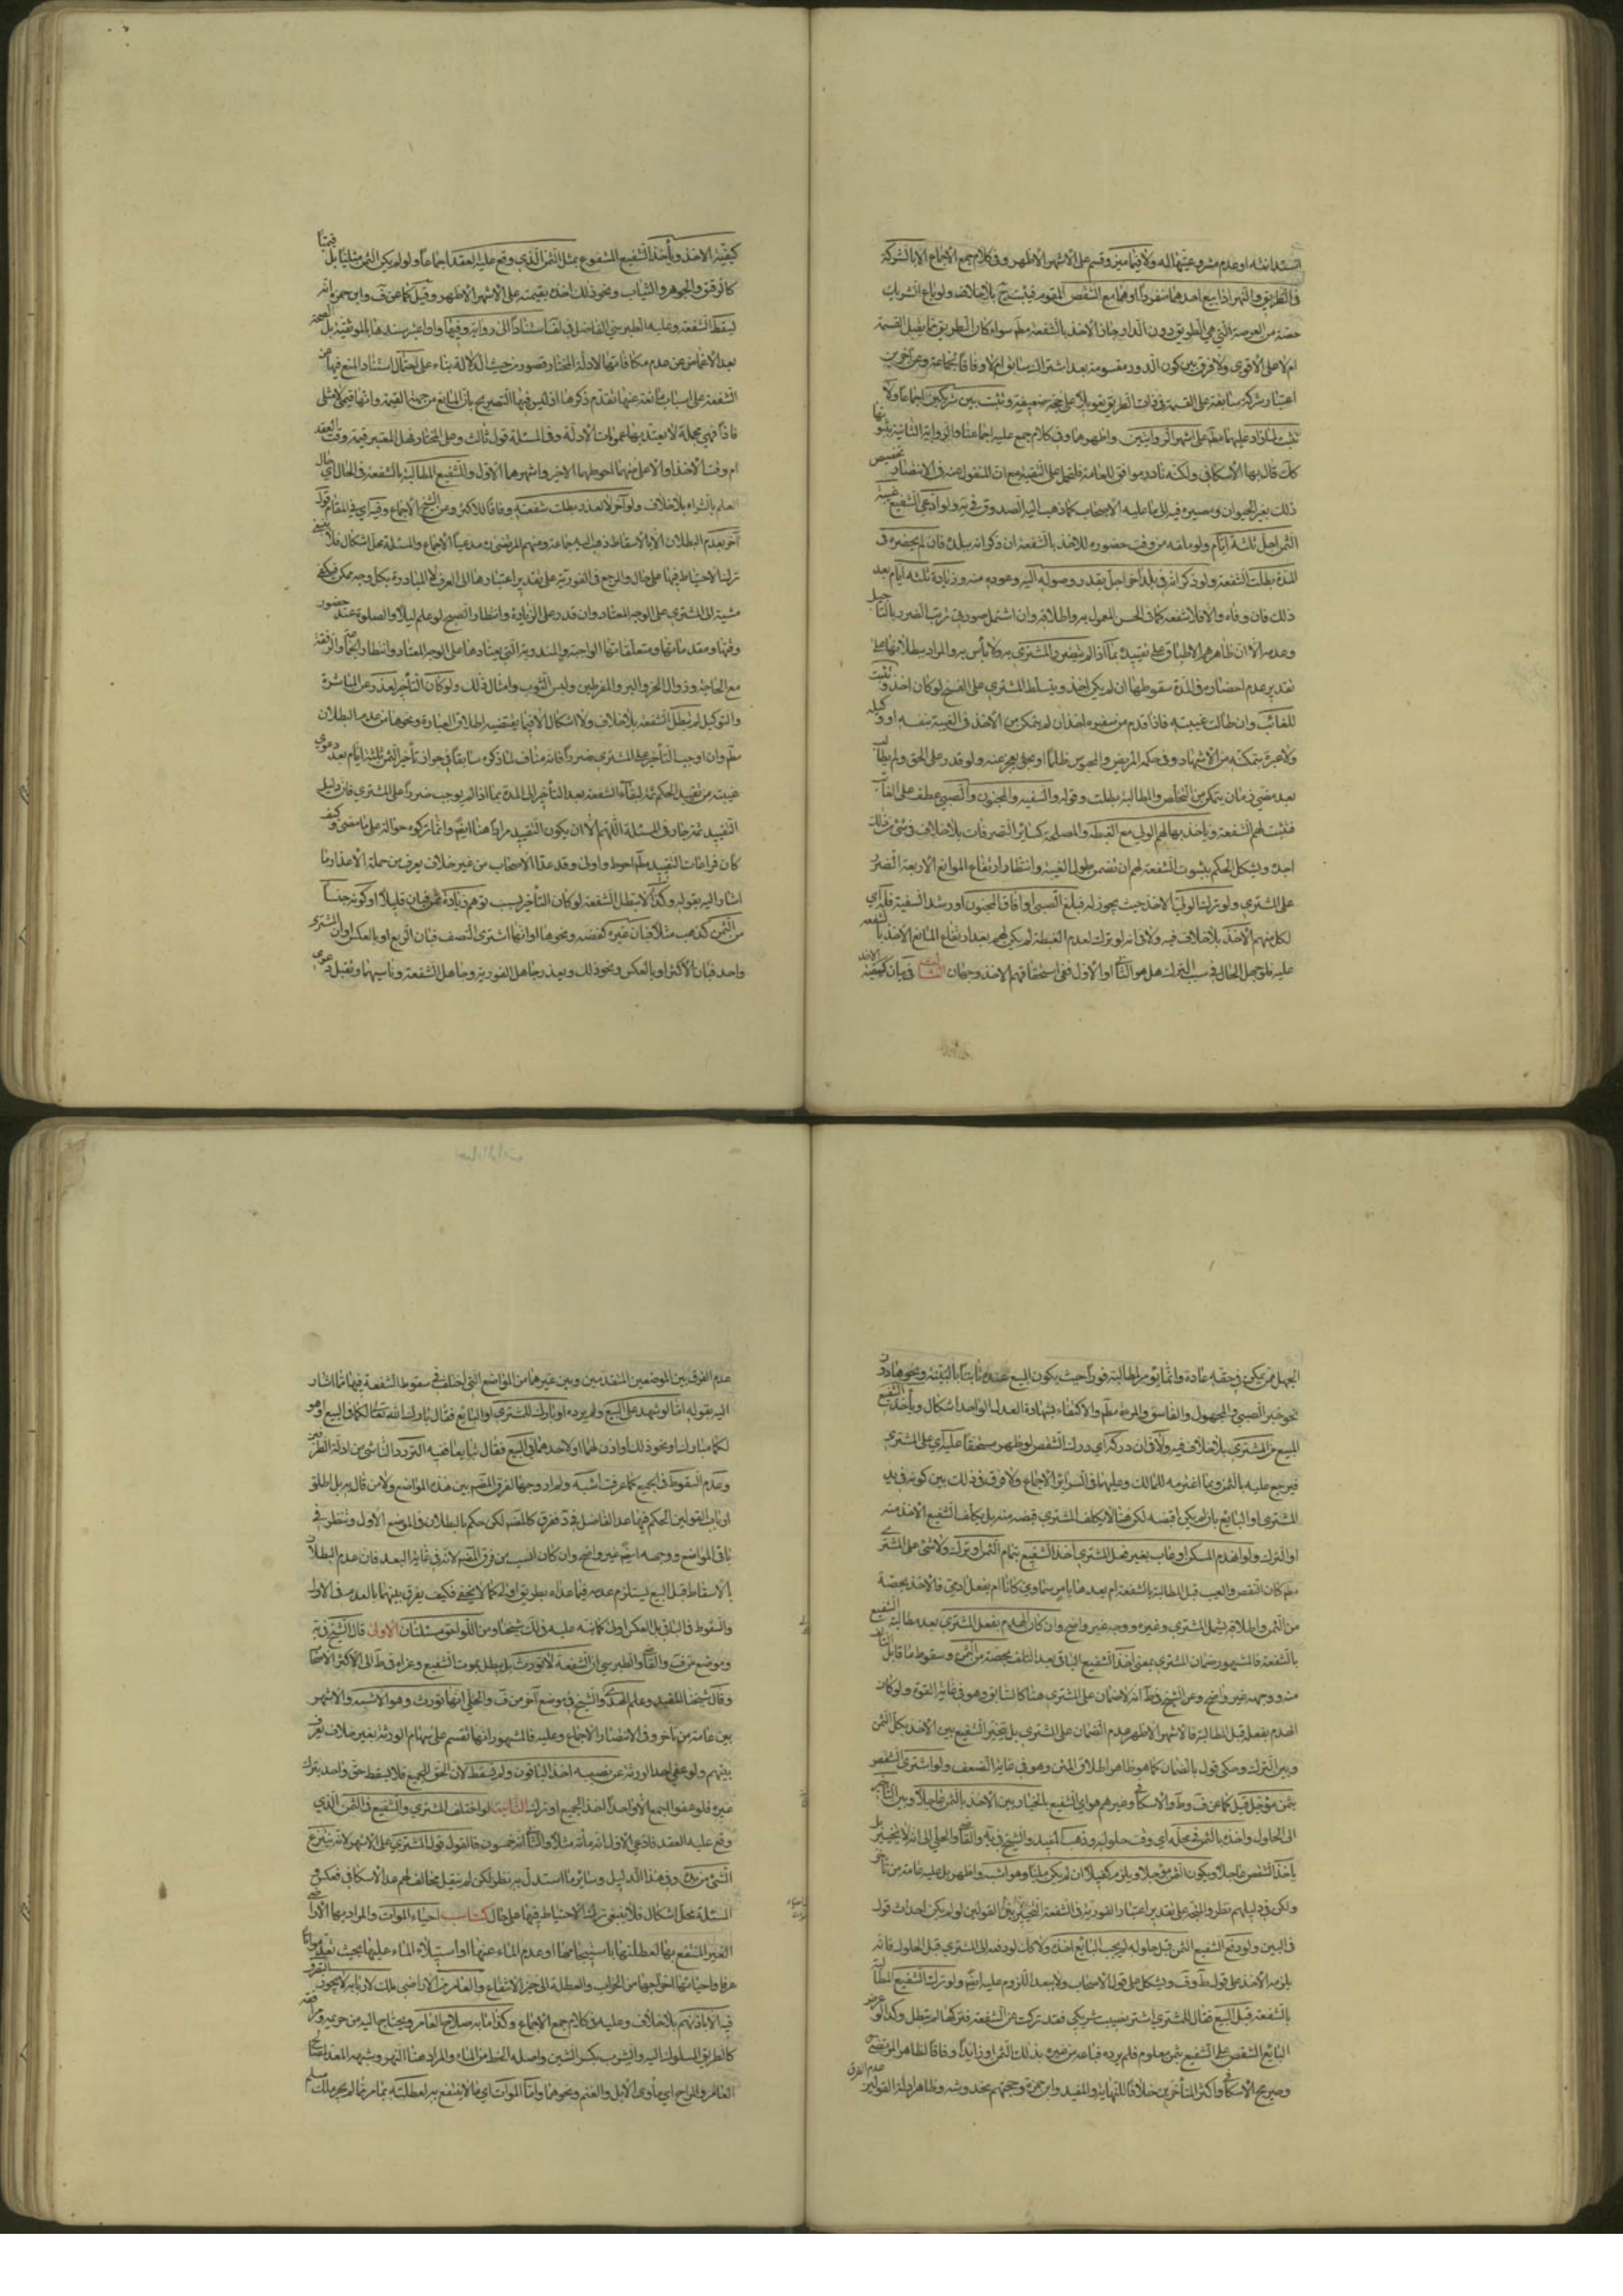 استدانته او عدم مشروعيتها له ولا فيما ميز وقسم على الاشهر الاظهر وفي كلام جمع الاجماع الا بالشركة
في الطريق والنهر اذا بيع احدهما منفردا او هما مع الشقص المقسوم فيثبت ح بلا خلاف ولو باع الشريك
حصته من العرصة التي هي الطريق دون الدار جاز الاخذ بالشفعة مطم سواء كان الطريق مما يقبل القسمة
ام لا على الاقوى ولا فرق بين كون الدور مقسومة بعد اشتراك سابق ام لا وفاقا لجماعة وعن آخرين
اعتبار شركة سابقة على القسمة في ذات الطريق تعويلا على حجة ضعيفة وتثبت بين شريكين اجماعا ولا
تثبت لما زاد عليهما مطم على اشهر الروايتين واظهرهما وفي كلام جمع عليه اجماعنا والرواية الثانية بثبوتها
كك قال بها الاسكافي ولكنه نادر موافق للعامة فلتحمل على التقية مع ان المنقول عنه في الانتصار تخصيص
ذلك بغير الحيوان ومصيره فيه الى ما عليه الاصحاب كما ذهب اليه الصدوق في يه ولو ادعى الشفيع غيبة
الثمن اجل ثلثة ايام ولو ملفقة من وقت حضوره للاخذ بالشفعة ان ذكر انه ببلده فان لم يحضره في
المدة بطلت الشفعة ولو ذكر انه في بلد آخر اجل بقدر وصوله اليه وعوده منه وزيادة ثلثه ايام بعد
ذلك فان وفاه والا فلا شفعة كما في الحسن المعول به واطلاقه وان اشتمل صورتي ترتب الضرر بالتاجيل
وعدمه الا ان ظاهرهم الاطباق على تقييده بما اذا لم يتضرر المشتري به ولا بأس به والمراد ببطلانها على
تقدير عدم احضاره في المدة سقوطها ان لم يكن اخذ ويتسلط المشتري على الفسخ لو كان اخذ وتثبت
للغائب وان طالت غيبته فاذا قدم من سفره اخذ ان لم يتمكن من الاخذ في الغيبة بنفسه او وكيله
ولا عبرة بتمكنه من الاشهاد وفي حكمه المريض والمحبوس ظلما او بحق يعجز عنه ولو قدر على الحق ولم يطالب
بعد مضي زمان يتمكن من التخلص والمطالبة بطلت وقوله والسفيه والمجنون والصبي عطف على الغائب
فتثبت لهم الشفعة ويأخذ بها لهم الولي مع الغبطة والمصلحة كسائر التصرفات بلا خلاف في شيء من ذلك
اجده ويشكل الحكم بثبوت الشفعة لهم ان تضمن طول الغيبة وانتظار ارتفاع الموانع الاربعة الضرر
على المشتري ولو ترك الولي الاخذ حيث يجوز له فبلغ الصبي او افاق المجنون او رشد السفيه فله اي
لكل منهم الاخذ بلا خلاف فيه ولا في انه لو ترك لعدم الغبطة لم يكن لهم بعد ارتفاع المانع الاخذ بالشفعة
عليه فلو جهل الحال في سبب الترك هل هو الثاني او الاول ففي استحقاقهم الاخذ وجهان الثالث في بيان كيفية الاخذ
كيفية الاخذ ويأخذ الشفيع المشفوع بمثل الثمن الذي وقع عليه العقد اجماعا ولو لم يكن الثمن مثليا بل قيميا
كالرقيق والجوهر والثياب ونحو ذلك اخذه بقيمته على الاشهر الاظهر وقيل كما عن ف وابن حمزة انه
تسقط الشفعة وعليه الطبرسي الفاضل في لف استنادا الى رواية وفيها وان اعتبر سندها بالموثقية بل الصحة
بعد الاغماض عن عدم مكافأتها لادلة المختار قصور من حيث الدلالة بناء على احتمال استناد المنع فيها عن
الشفعة على اسباب مانعة عنها تقدم ذكرها اذ ليس فيها التصريح بان المانع من جهة القيمة وانها قيمي لا مثلي
فاذا فهي مجملة لا يعتد بها عمومات الادلة وفي المسئلة قول ثالث وعلى المختار فهل المعتبر قيمته وقت العقد
ام وقت الاخذ او الاعلى منهما احوطها الاخير واشهرهما الاول وللشفيع المطالبة بالشفعة في الحال اي حال
العلم بالشراء بلا خلاف ولو أخر لا لعذر بطلت شفعته وفاقا للاكثر وعن الشيخ الاجماع وفيه اي في المقام قول
آخر بعدم البطلان الا بالاسقاط ذهب اليه جماعة ومنهم المرتضى ره مدعيا الاجماع والمسئلة محل اشكال فلا ينبغي
ترك الاحتياط فيها على حال والمرجع في الفورية على تقدير اعتبارها الى العرف لا المبادرة بكل وجه ممكن فيكفي
مشيه الى المشتري على الوجه المعتاد وان قدر على الزيادة وانتظار الصبح لو علم ليلا والصلوة عند حضور
وقتها ومقدماتها ومتعلقاتها الواجبة والمندوبة التي يعتادها على الوجه المعتاد وانتظار الحمام والرفقة
مع الحاجة وزوال الحر والبرد المفرطين ولبس الثوب وامثال ذلك ولو كان التأخير لعذر عن المباشرة
والتوكيل لم تبطل الشفعة بلا خلاف ولا اشكال الا فيما يقتضيه اطلاق العبارة ونحوها من عدم البطلان
مطم وان اوجب التأخير على المشتري ضررا فانه مناف لما ذكره سابقا في جواز تأخير الثمن ثلثة ايام بعد دعوى
غيبته من تقييد الحكم ثمه لبقاء الشفعة بعد التأخير الى المدة بما اذا لم يوجب ضررا على المشتري فان دليل
التقييد ثمه جار في المسئلة اللهم الا ان يكون التقييد مرادا هنا ايضا وانما تركوه حوالة على ما مضى وكيف
كان فمراعات التقييد مطم احوط واولى وقد عد الاصحاب من غير خلاف يعرف من جملة الاعذار ما
اشار اليه بقوله وكذا لا تبطل الشفعة لو كان التأخير بسبب توهم زيادة ثمن فبان قليلا او كونه جنسا
من الثمن كذهب مثلا فبان غيره كفضة ونحوها او انها اشترى النصف فبان الربع او بالعكس او ان المشتري
واحد فبان الاكثر او بالعكس ونحو ذلك ويعذر جاهل الفورية وجاهل الشفعة وناسيهما وتقبل دعوى
الجهل ممن يمكن في حقه عادة وانما يؤمر بالمطالبة فورا حيث يكون البيع عنده ثابتا بالبينة ونحوها دون
نحو خبر الصبي والمجهول والفاسق والمرءة مطم والاكتفاء بشهادة العدل الواحد اشكال ويأخذ الشفيع
المبيع من المشتري بلا خلاف فيه ولا في ان دركه اي درك الشقص لو ظهر مستحقا عليه اي على المشتري
فيرجع عليه بالثمن وبما اغترمه للمالك وعليهما في السرائر الاجماع ولا فرق في ذلك بين كونه في يد
المشتري او البايع بان لم يكن اقبضه لكن هنا لا يكلف المشتري قبضه منه بل يكلف الشفيع الاخذ منه
او الترك ولو انهدم المسكن او عاب بغير فعل المشتري اخذ الشفيع بتمام الثمن او ترك ولا شيء على المشتري
مطم كان النقص والعيب قبل المطالبة بالشفعة ام بعدها بامر سماوي كانا ام بفعل آدمي فالاخذ بحصته
من الثمن واطلاقه يشمل المشتري وغيره ووجه غير واضح وان كان الهدم بفعل المشتري بعد مطالبة الشفيع
بالشفعة فالمشهور ضمان المشتري بمعنى اخذ الشفيع الباقي بعد التلف بحصته من الثمن وسقوط ما قابل التالف
منه ووجهه غير واضح وعن الشيخ في ط انه لا ضمان على المشتري هنا كالسابق وهو في غاية القوة ولو كان
الهدم بفعله قبل المطالبة فالاشهر الاظهر عدم الضمان على المشتري بل يتخير الشفيع بين الاخذ بكل الثمن
وبين الترك وحكي قول بالضمان كما هو ظاهر اطلاق المتن وهو في غاية الضعف ولو اشترى الشقص
بثمن مؤجل قيل كما عن ف وط والاسكافي وغيرهم هو اي الشفيع بالخيار بين الاخذ بالثمن عاجلا وبين التأخير
الى الحلول واخذه بالثمن في محله اي وقت حلوله وذهب المفيد والشيخ في يه والقاضي والحلي الى انه لا يتخير بل
يأخذ الشقص عاجلا ويكون الثمن مؤجلا ويلزم كفيلا ان لم يكن مليا وهو اشبه واظهر بل عليه عامة من تأخر
ولكن في دليلهم نظر والمتجه على تقدير اعتبار الفورية في الشفعة التخيير بين القولين لو لم يكن احداث قول
في البين ولو دفع الشفيع الثمن قبل حلوله لم يجب البائع اخذه ولا كان لو دفعه الى المشتري قبل الحلول فانه
يلزمه الاخذ على قول ط وف ويشكل على قول الاصحاب ولا يبعد اللزوم عليه ايضا ولو ترك الشفيع المطالبة
بالشفعة قبل البيع فقال للمشتري اشتر نصيب شريكي فقد تركت عن الشفعة فتركها لم تبطل وكذا لو عرض
البائع الشقص على الشفيع بثمن معلوم فلم يرده فباعه من غيره بذلك الثمن او زايدا وفاقا لظاهر المرتضى
وصريح الاسكافي واكثر المتأخرين خلافا للنهاية والمفيد وابن حمزة وحجتهم مخدوشة وظاهر ادلة القولين عدم الفرق
عدم الفرق بين الموضعين المتقدمين وبين غيرهما من المواضع التي اختلف في سقوط الشفعة فيها مما اشار
اليه بقوله اما لو شهد على البيع ولم يرده او بارك للمشتري او البايع فقال بارك الله تعالى لكما في البيع او هو
لكما مبارك او نحو ذلك او اذن لهما او لاحدهما في البيع فقال تبايعا ففيه التردد الناشي من ادلة الطرفين
وعدم السقوط في الجميع كما عرفت اشبه ولم ار وجها لفرق المصنف بين هذه المواضع ولا من قال به بل اطلق
ارباب القولين الحكم فيها عدا الفاضل في د ففرق كالمصنف لكن حكم بالبطلان في الموضع الاول وتنظر في
باقي المواضع ووجهه ايضا غير واضح وان كان انسب من فرق المصنف لانه في غاية البعد فان عدم البطلان
بالاسقاط قبل البيع يستلزم عدمه فيما عداه بطريق اولى كما لا يخفى فكيف يفرق بينهما بالعدم في الاول
والسقوط في الباقي بل العكس اولى كما نبه عليه في لك شيخنا ومن اللواحق مسئلتان الاولى قال الشيخ في يه
وموضع من ف والقاضي والطبرسي ان الشفعة لا تورث بل تبطل بموت الشفيع وعزاه في ط الى الاكثر الاصحاب
وقال شيخنا المفيد وعلم الهدى والشيخ في موضع آخر من ف والحلي انها تورث وهو الاشبه والاشهر
بين عامة من تأخر وفي الانتصار الاجماع وعليه فالمشهور انها تقسم على سهام الورثة بغير خلاف يعرف
بينهم ولو عفى احد الورثة عن نصيبه اخذ الباقون ولم تسقط لان الحق للجميع فلا يسقط حق واحد بترك
غيره فلو عفوا الجميع الا واحدا اخذ الجميع او ترك الثانية لو اختلف المشتري والشفيع في الثمن الذي
وقع عليه العقد فادعى الاول انه مأته مثلا والثاني انه خمسون فالقول قول المشتري على الاشهر لانه ينتزع
الشيء من يده وفي هذا الدليل وسائر ما استدل به نظر لكن لم ينقل مخالف لهم عدا الاسكافي فعكس و
المسئلة محل اشكال فلا ينبغي ترك الاحتياط فيها على حال كتاب احياء الموات والمراد بها الاراضي
الغير المنتفع بها لعطلتها باستيجامها او عدم الماء عنها او استيلاء الماء عليها بحيث تعد مواتا
عرفا واحيائها اخراجها من الخراب والعطلة الى حيز الانتفاع والعامر من الاراضي ملك لاربابه لا يجوز التصرف
فيه الا باذنهم بلا خلاف وعليه في كلام جمع الاجماع وكذا ما به صلاح العامر ويحتاج اليه من حريمه ومرافقه
كالطريق المسلوك اليه والشرب بكسر الشين واصله الحظ من الماء والمراد هنا النهر وشبهه المعد لصلاح
العامر والمراح اي مأوى الابل والغنم ونحوها واما الموات اي ما لا ينتفع به لعطلته بما مر مما لم يجر ملك مسلم